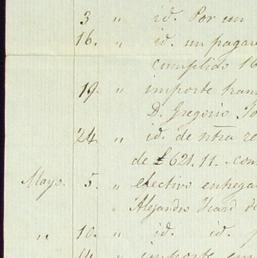 3 " id. Por un
16. " id. un pagare
cumplido 16
19 " importe tran
D. Gregorio
24 " id. de ntra re
de £621.11. con
Mayo. 5. " efectivo entrega
" Alejandro
" 10. " id. id.
14. " importe